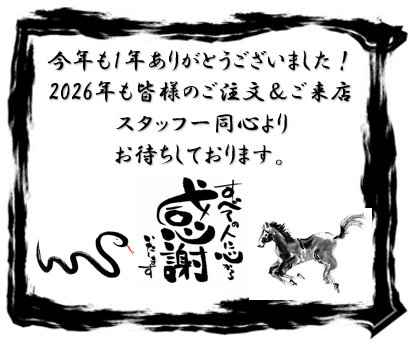 今年も1年ありがとうございました！
2026年も皆様のご注文＆ご来店
スタッフ一同心より
お待ちしております。
すべての人に心から
感謝
いたします